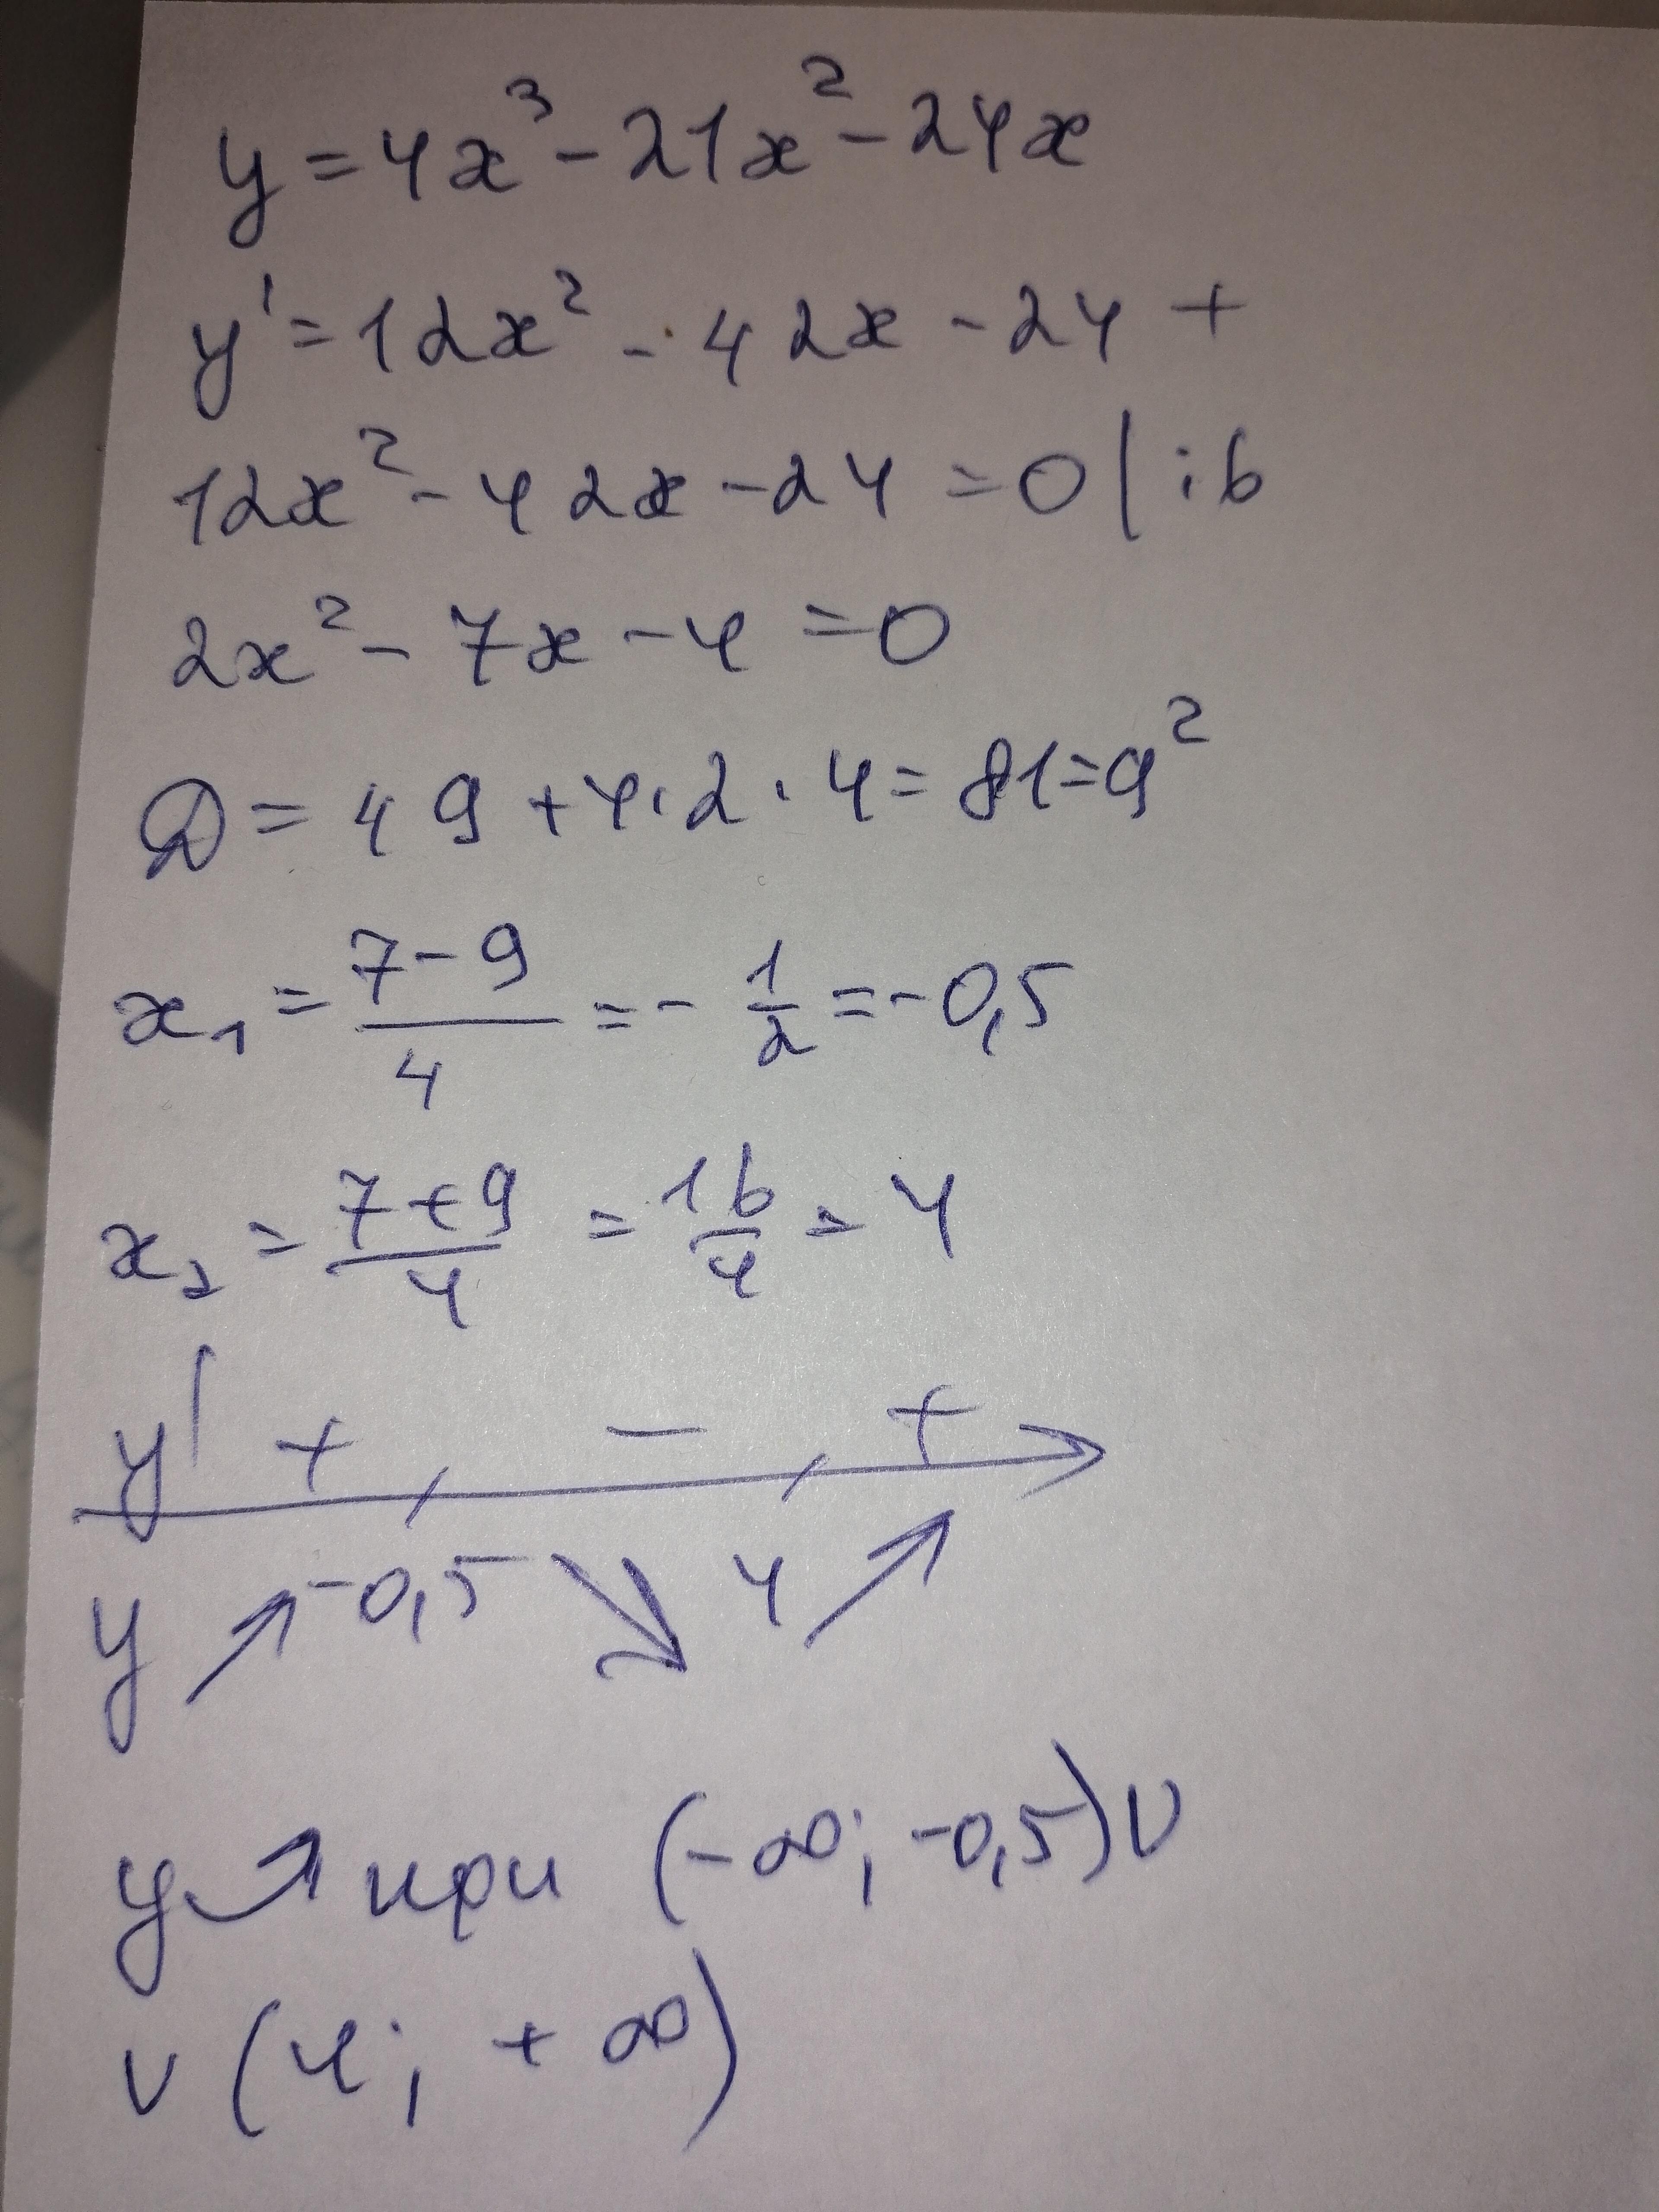 y = 4x³ - 21x² - 24x
y' = 12x² - 42x - 24 +
12x² - 42x - 24 = 0 | : 6
2x² - 7x - 4 = 0
D = 49 + 4·2·4 = 81 = 9²
x₁ = (7-9)/4 = - 1/2 = -0,5
x₂ = (7+9)/4 = 16/4 = 4
y' + - +
y ↗ -0,5 ↘ 4 ↗
y ↗ при (-∞; -0,5) ∪
∪ (4; +∞)